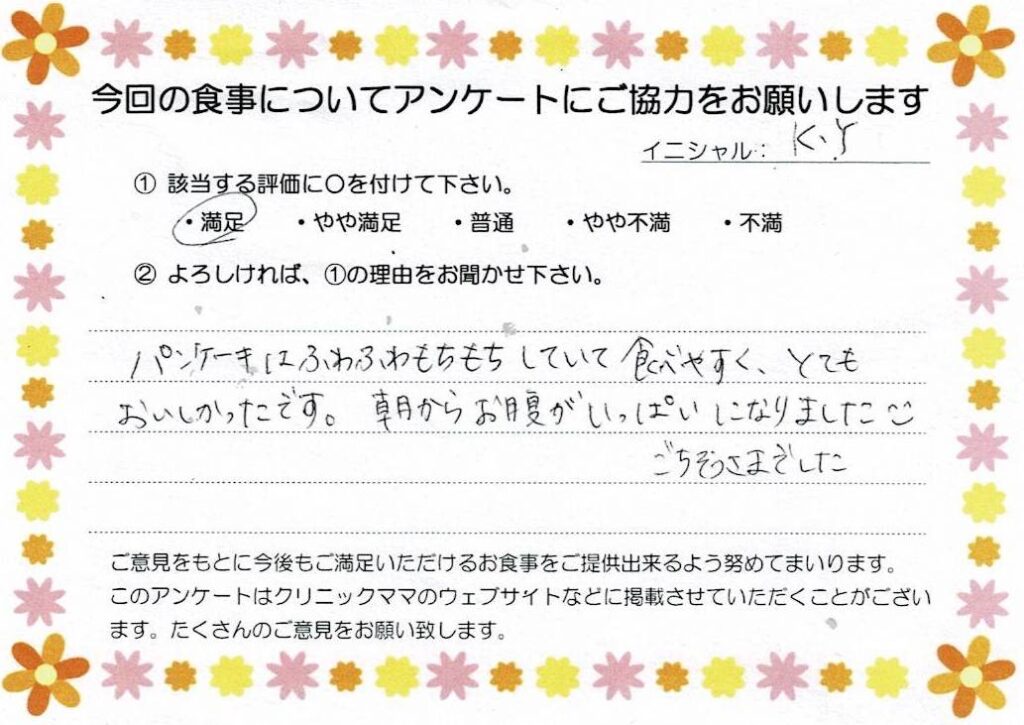 今回の食事についてアンケートにご協力をお願いします
イニシャル： K.Y
① 該当する評価に○を付けて下さい。
・満足 ・やや満足 ・普通 ・やや不満 ・不満
② よろしければ、①の理由をお聞かせ下さい。
パンケーキはふわふわもちもちしていて食べやすく、とても
おいしかったです。朝からお腹がいっぱいになりました
ごちそうさまでした
ご意見をもとに今後もご満足いただけるお食事をご提供出来るよう努めてまいります。
このアンケートはクリニックママのウェブサイトなどに掲載させていただくことがござい
ます。たくさんのご意見をお願い致します。